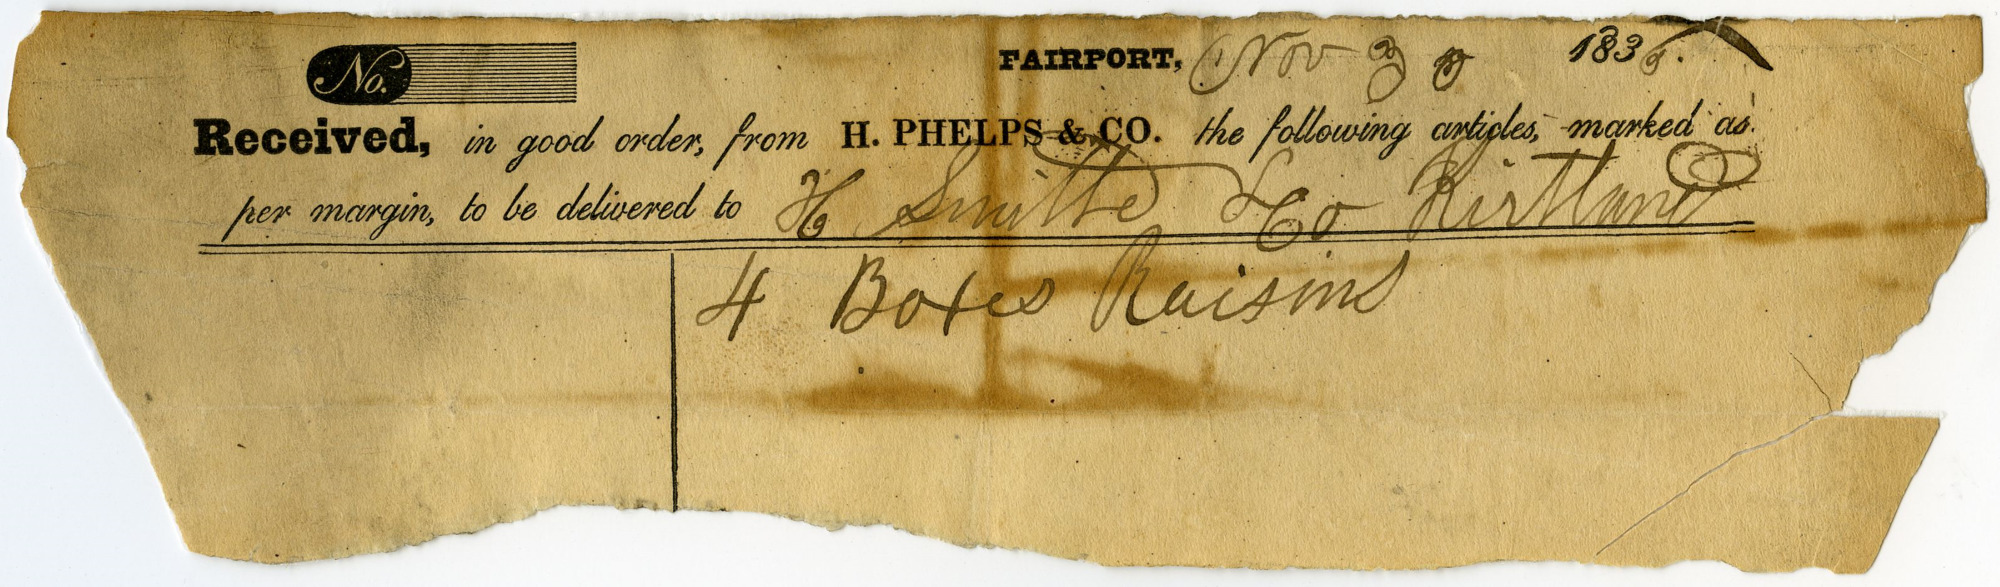 No.
FAIRPORT, Nov 183
Received, in good order, from H. PHELPS & CO. the following articles, marked as
per margin, to be delivered to H Smith & Co Kirtland
4 Boxes Raisins